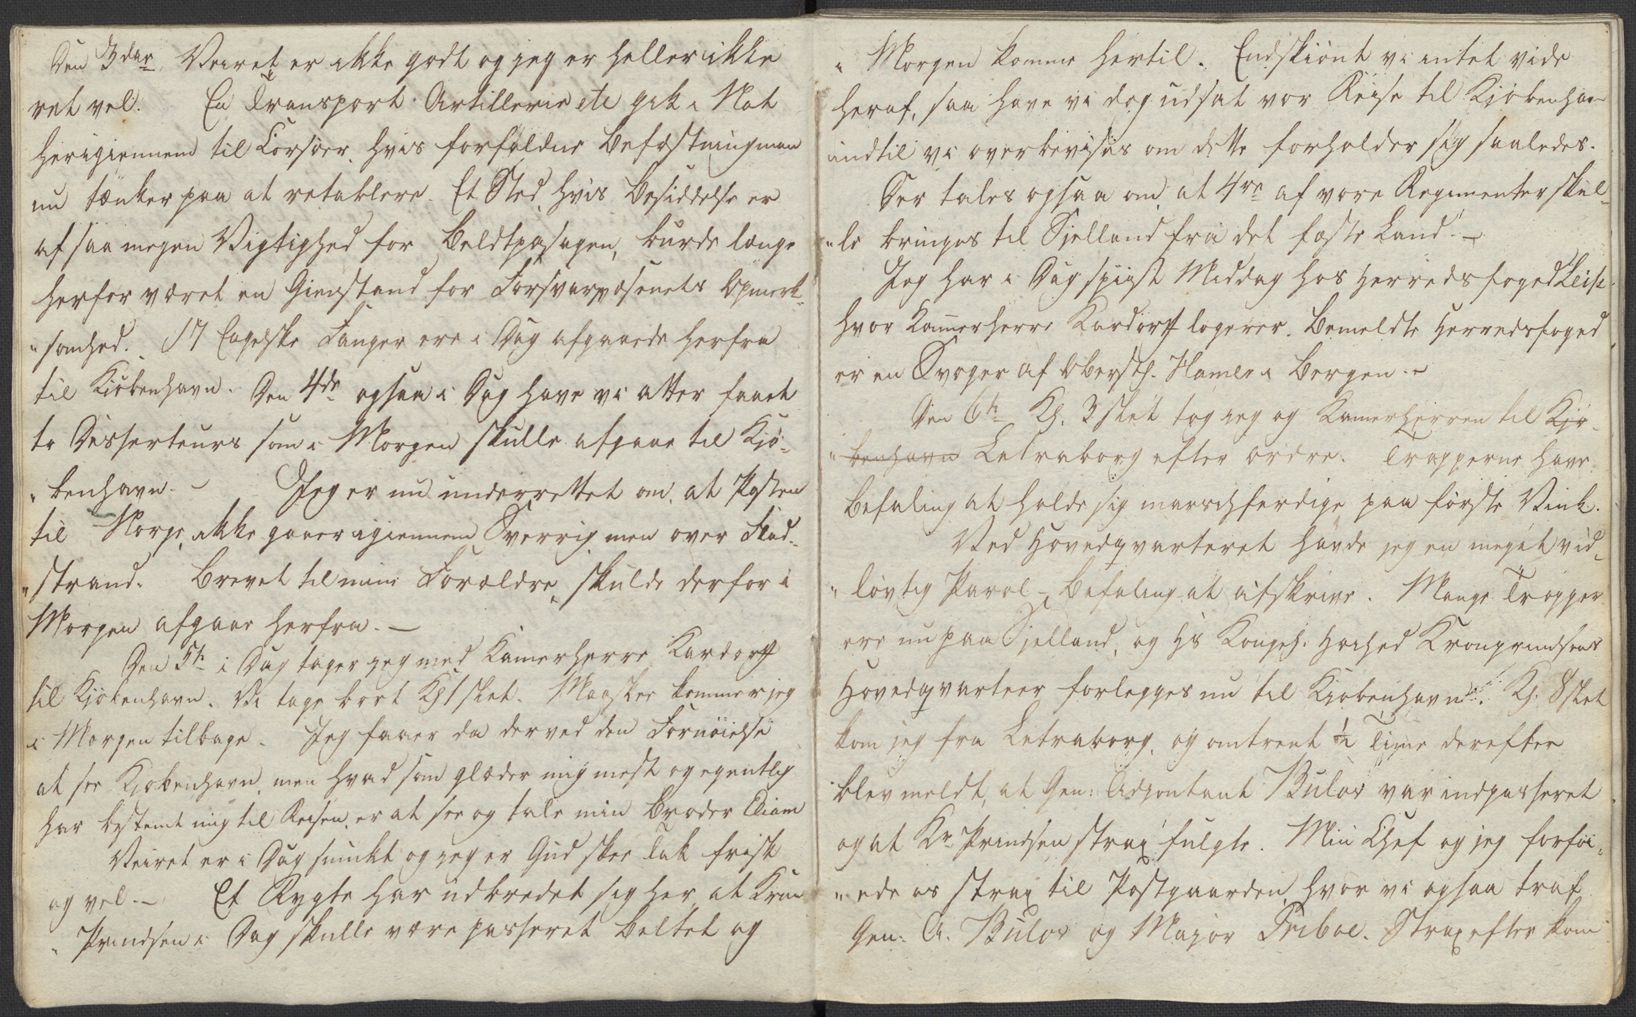 Den 3die Veiret er ikke godt og jeg er heller ikke
ret vel. En Transport Artillerie etc gik i Nat
herigiennem til Corsöer, hvis forfaldne Befæstning man
nu tænker paa at retablere. Et Sted, hvis Besiddelse er
af saa megen Vigtighed for Beldtpassagen, burde længe
herfor været en Gienstand for Forsvarsvæsenets Opmerk-
"somhed. 17 Engelske Fanger ere i Dag afgaaede herfra
til Kiöbenhavn. Den 4de ogsaa i Dag have vi atter faaet
to Desserteurs som i Morgen skulle afgaae til Kiö-
"benhavn. – Jeg er nu underrettet om, at Posten
til Norge, ikke gaaer igiennem Sverrig men over Flad-
"strand. Brevet til mine Forældre, skulde derfor i
Morgen afgaae herfra. —
Den 5te i Dag tager jeg med Kamerherre Kardorff
til Kiöbenhavn. Vi tage bort Kl 1 slet. Maaskee kommer jeg
i Morgen tilbage. Jeg faaer da derved den Fornöielse
at see Kiöbenhavn, men hvad som glæder mig mest og egentlig
har bestemt mig til Reisen, er at see og tale min Broder
Veiret er i Dag smukt og jeg er Gud skee Tak frisk
og vel. – Et Rygte har udbredet sig her, at Kron
"Prindsen i Dag skulle være passeret Beltet og
i Morgen komme hertil. Endskiönt vi intet vide
heraf, saa have vi dog udsat vor Reise til Kiöbenhavn
indtil vi overbevises om dette forholder sig saaledes.
Der tales ogsaa om, at 4re af vore Regimenter skul-
"le bringes til Sielland fra det faste Land. –
Jeg har i Dag spiist Middag hos Herredsfoged
hvor Kammerherre Kardorff logerer. Bemeldte Herredsfoged
er en Svoger af Oberstl. Hamler i Bergen. –
Den 6te Kl. 3 slet tog jeg og Kamerherren til Kiö-
"benhavn Letraborg efter Ordre. Tropperne have
Befaling at holde sig marschferdige paa förste Vink.
Ved Hovedqvarteret havde jeg en meget vid-
"löftig Parol-Befaling at afskrive. Mange Tropper
ere nu paa Sielland, og Hs Kongel. Höihed Kronprindsens
Hovedqvarteer forlegges nu til Kiöbenhavn. Kl. 8 slet
kom jeg fra Letraborg, og omtrent ½ Time derefter
blev meldt, at Gen: Adjontant Bülow var indpasseret
og at Kr Prindsen strax fulgte. Min Chef og jeg forföi-
"ede os strax til Postgaarden, hvor vi ogsaa traf
Gen: A. Bülow og Major Friboe. Strax efter kom